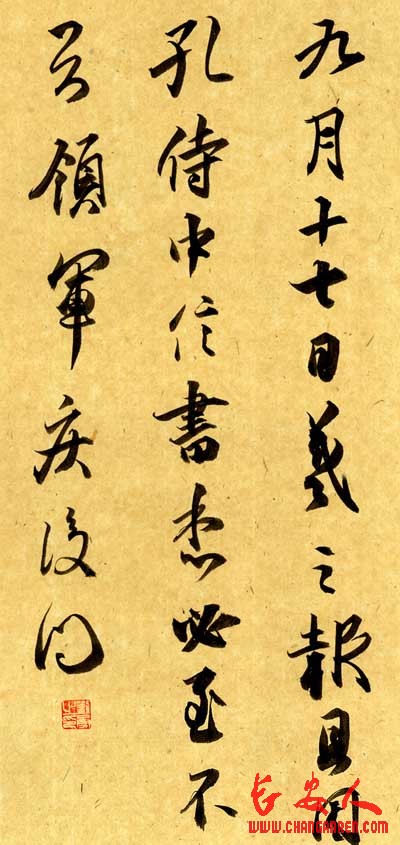 九月十七日羲之報且因
孔侍中信書想必至不
知領軍疾後問
长安人
WWW.CHANGANREN.COM